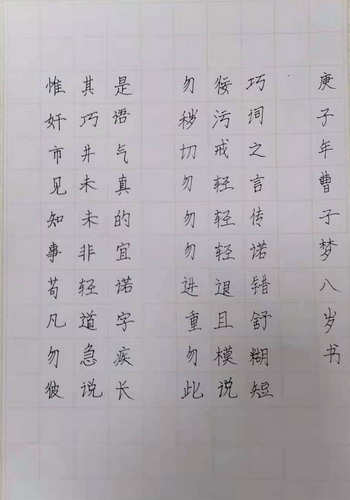 惟其是 勿佞巧
奸巧语 秽污词
市井气 切戒之
见未真 勿轻言
知未的 勿轻传
事非宜 勿轻诺
苟轻诺 进退错
凡道字 重且舒
勿急疾 勿模糊
彼说长 此说短
庚子年曹子梦八岁书